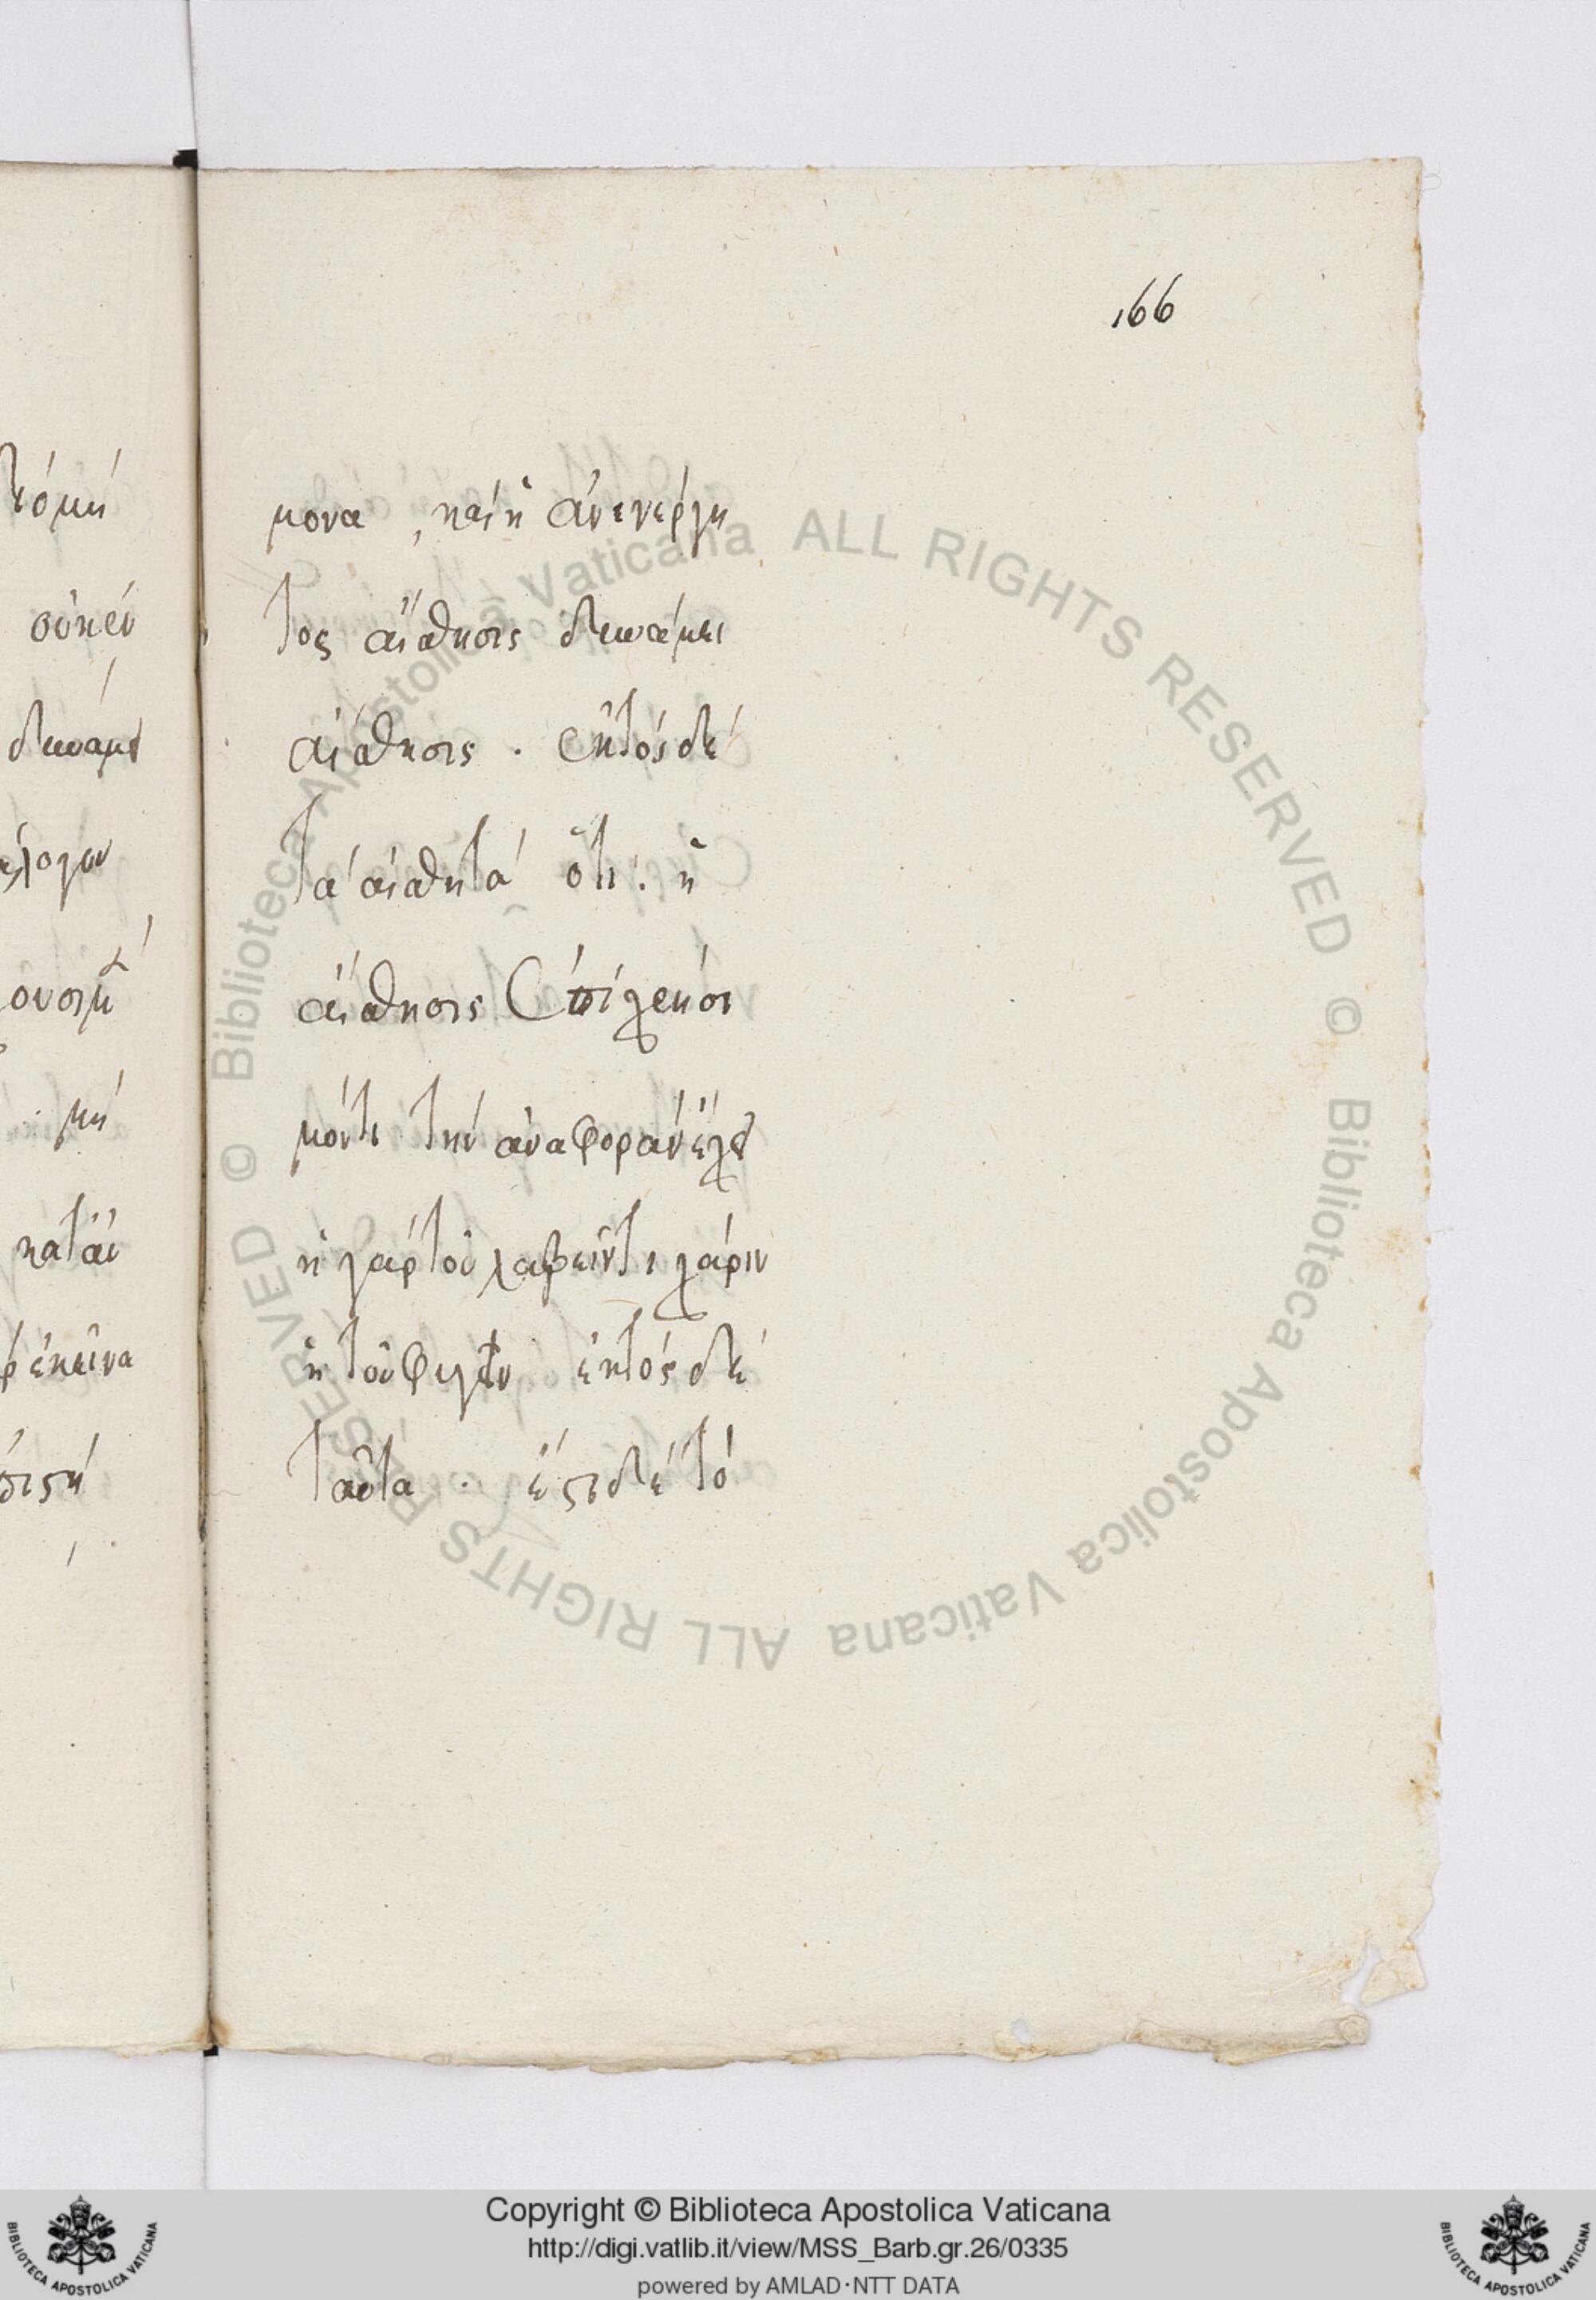 166
μονα , καὶ ἡ ἀνενέργη
τος αἴσθησις δυνάμει
αἴσθησις . ἐκτὸς δὲ
τὰ αἰσθητὰ ὅτι . ἡ
αἴσθησις ἐπὶ χρήσι
μόν τι τὴν ἀναφορὰν ἔχει
ἢ γὰρ τοῦ λαβεῖν τι χάριν
ἢ τοῦ φυγεῖν ἐκτὸς δὲ
ταῦτα . ἔστι δὲ τὸ
τὸ μὴ
οὐκ ἐν
δυνάμει
μὴ
κατὰ
ἐκεῖνα
© Biblioteca Apostolica Vaticana ALL RIGHTS RESERVED © Biblioteca Apostolica Vaticana ALL RIGHTS RESERVED
Copyright © Biblioteca Apostolica Vaticana
http://digi.vatlib.it/view/MSS_Barb.gr.26/0335
powered by AMLAD·NTT DATA
BIBLIOTECA APOSTOLICA VATICANA
BIBLIOTECA APOSTOLICA VATICANA